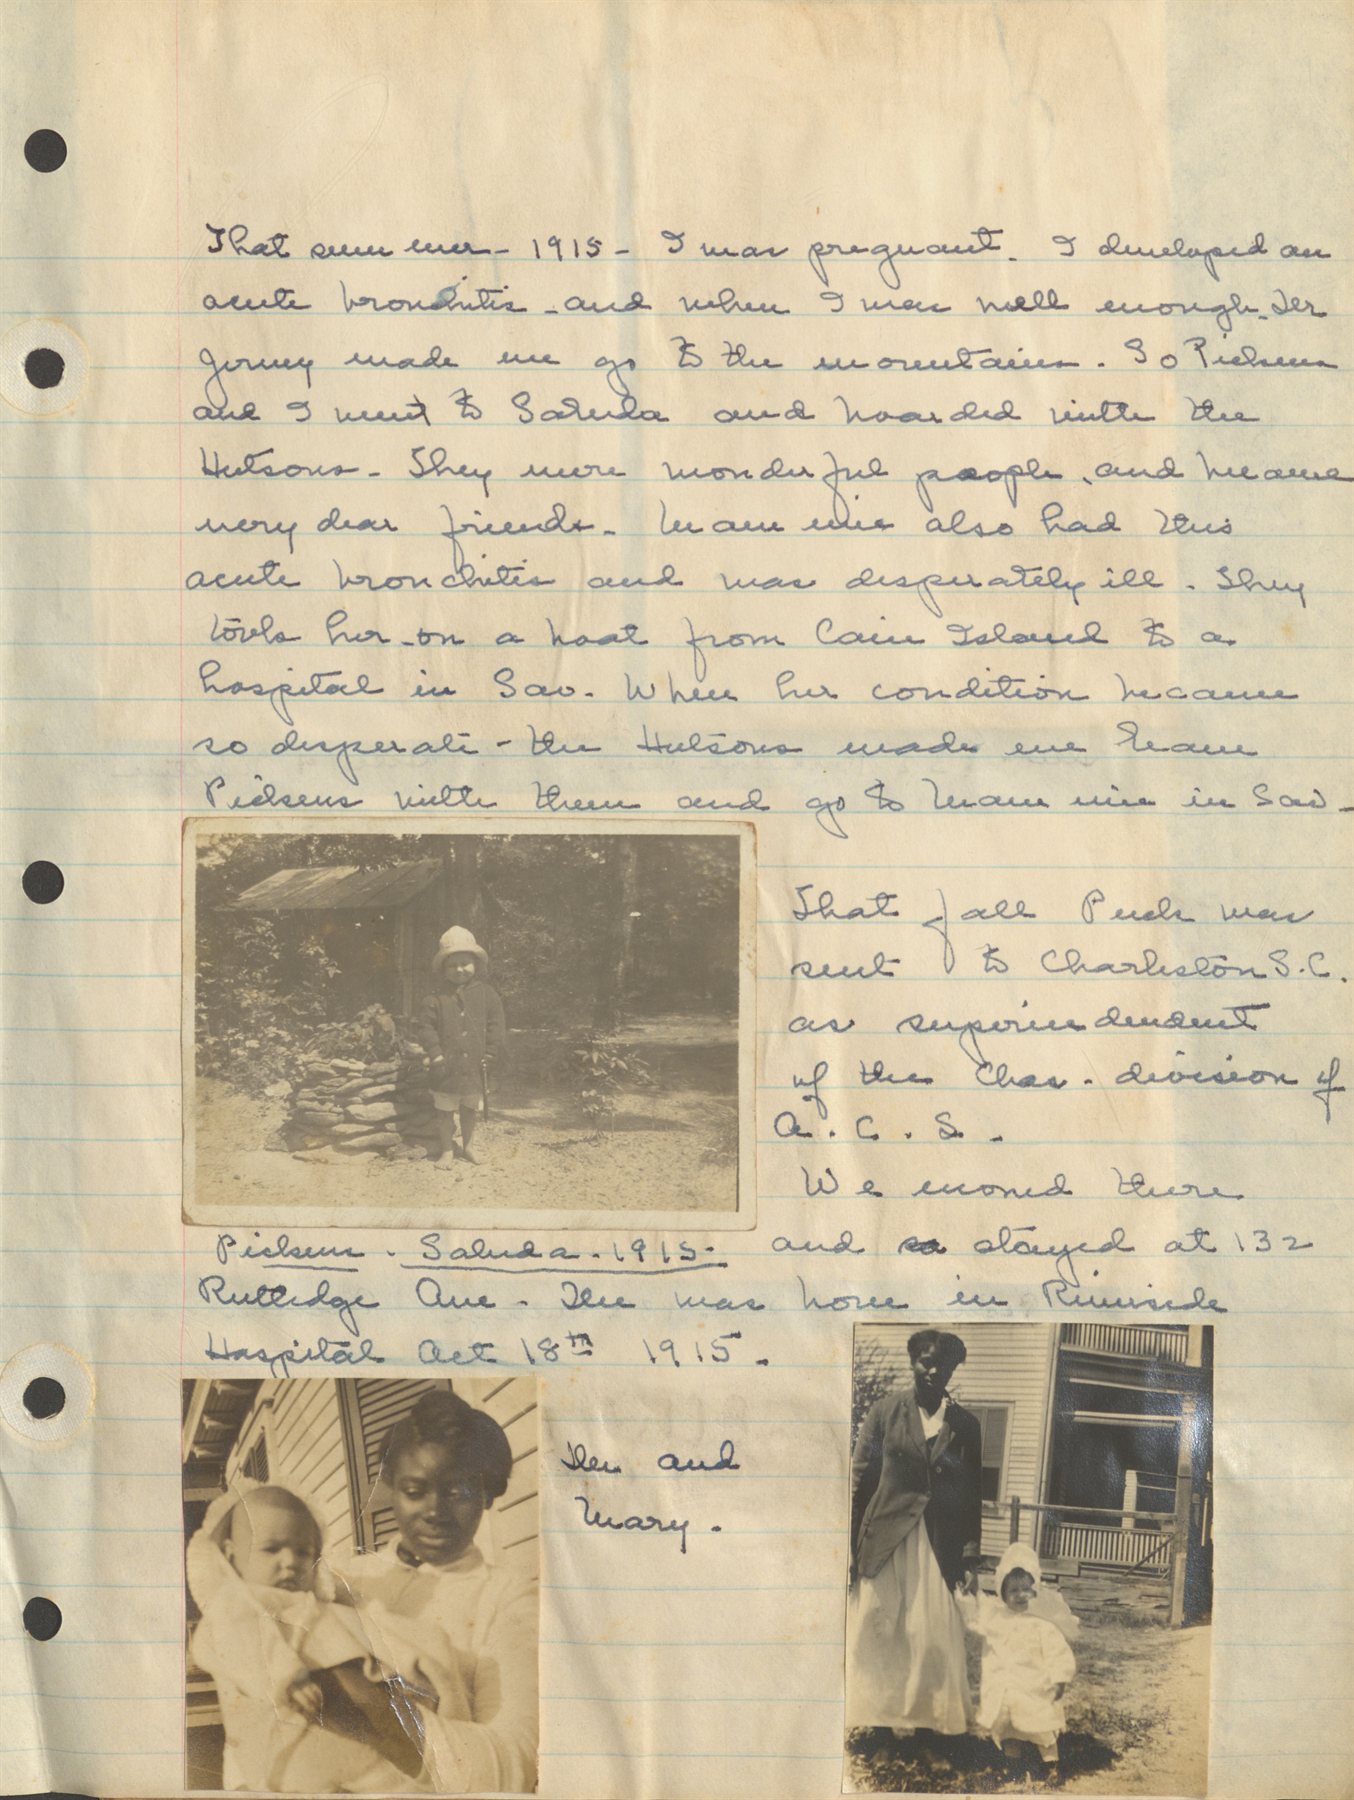 That summer - 1915 - I was pregnant. I developed an
acute bronchitis - and when I was well enough - Dr
made me go to the mountains. So Pickens
and I went to Saluda and boarded with the
Hutsons - They were wonderful people, and became
very dear friends - Mammie also had this
acute bronchitis and was desperately ill. They
took her - on a boat from Cain Island to a
hospital in Sav. When her condition became
so desperate - the Hutsons made me leave
Pickens with them and go to Mammie in Sav -
That fall Puck was
sent to Charleston S.C.
as superintendent
of the Chas. division of
A. C. L. -
We moved there
Pickens - Saluda - 1915 -
and stayed at 132
Rutledge Ave - was born in Riverside
Hospital Oct 18th 1915 -
and
Mary.